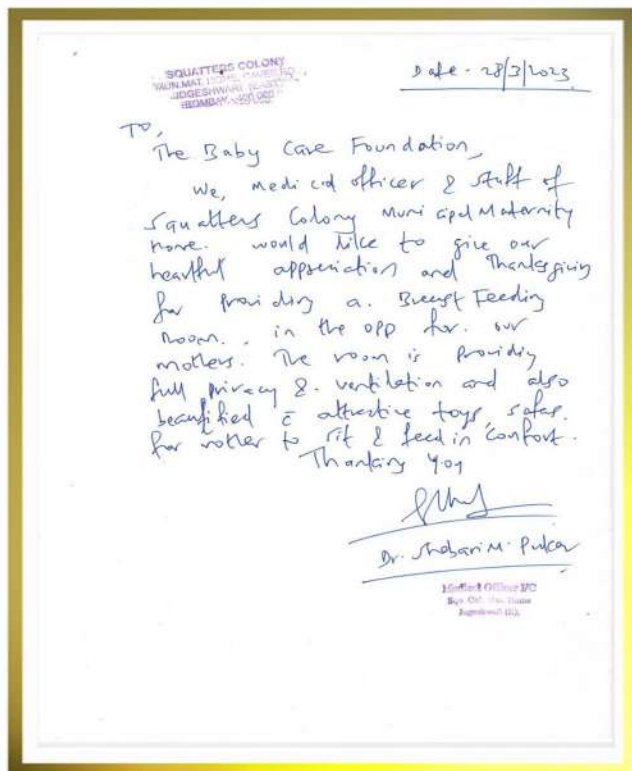 SQUATTERS COLONY
MUN.MAT. HOME, CAVES RD.
JOGESHWARI (EAST)
BOMBAY - 400 060
Date - 28/3/2023
To,
The Baby Care Foundation,
We, medical officer & staff of
Squatters Colony Municipal Maternity
home. would like to give our
heartful appreciation and Thanksgiving
for providing a. Breast Feeding
room., in the opp for. our
mothers. The room is providing
full privacy & ventilation and also
beautified c̄ attractive toys, sofas.
for mother to sit & feed in comfort.
Thanking you
Dr. Shabari M.
Medical Officer I/C
Sqs. Col. Mat. Home
Jogeshwari (E).